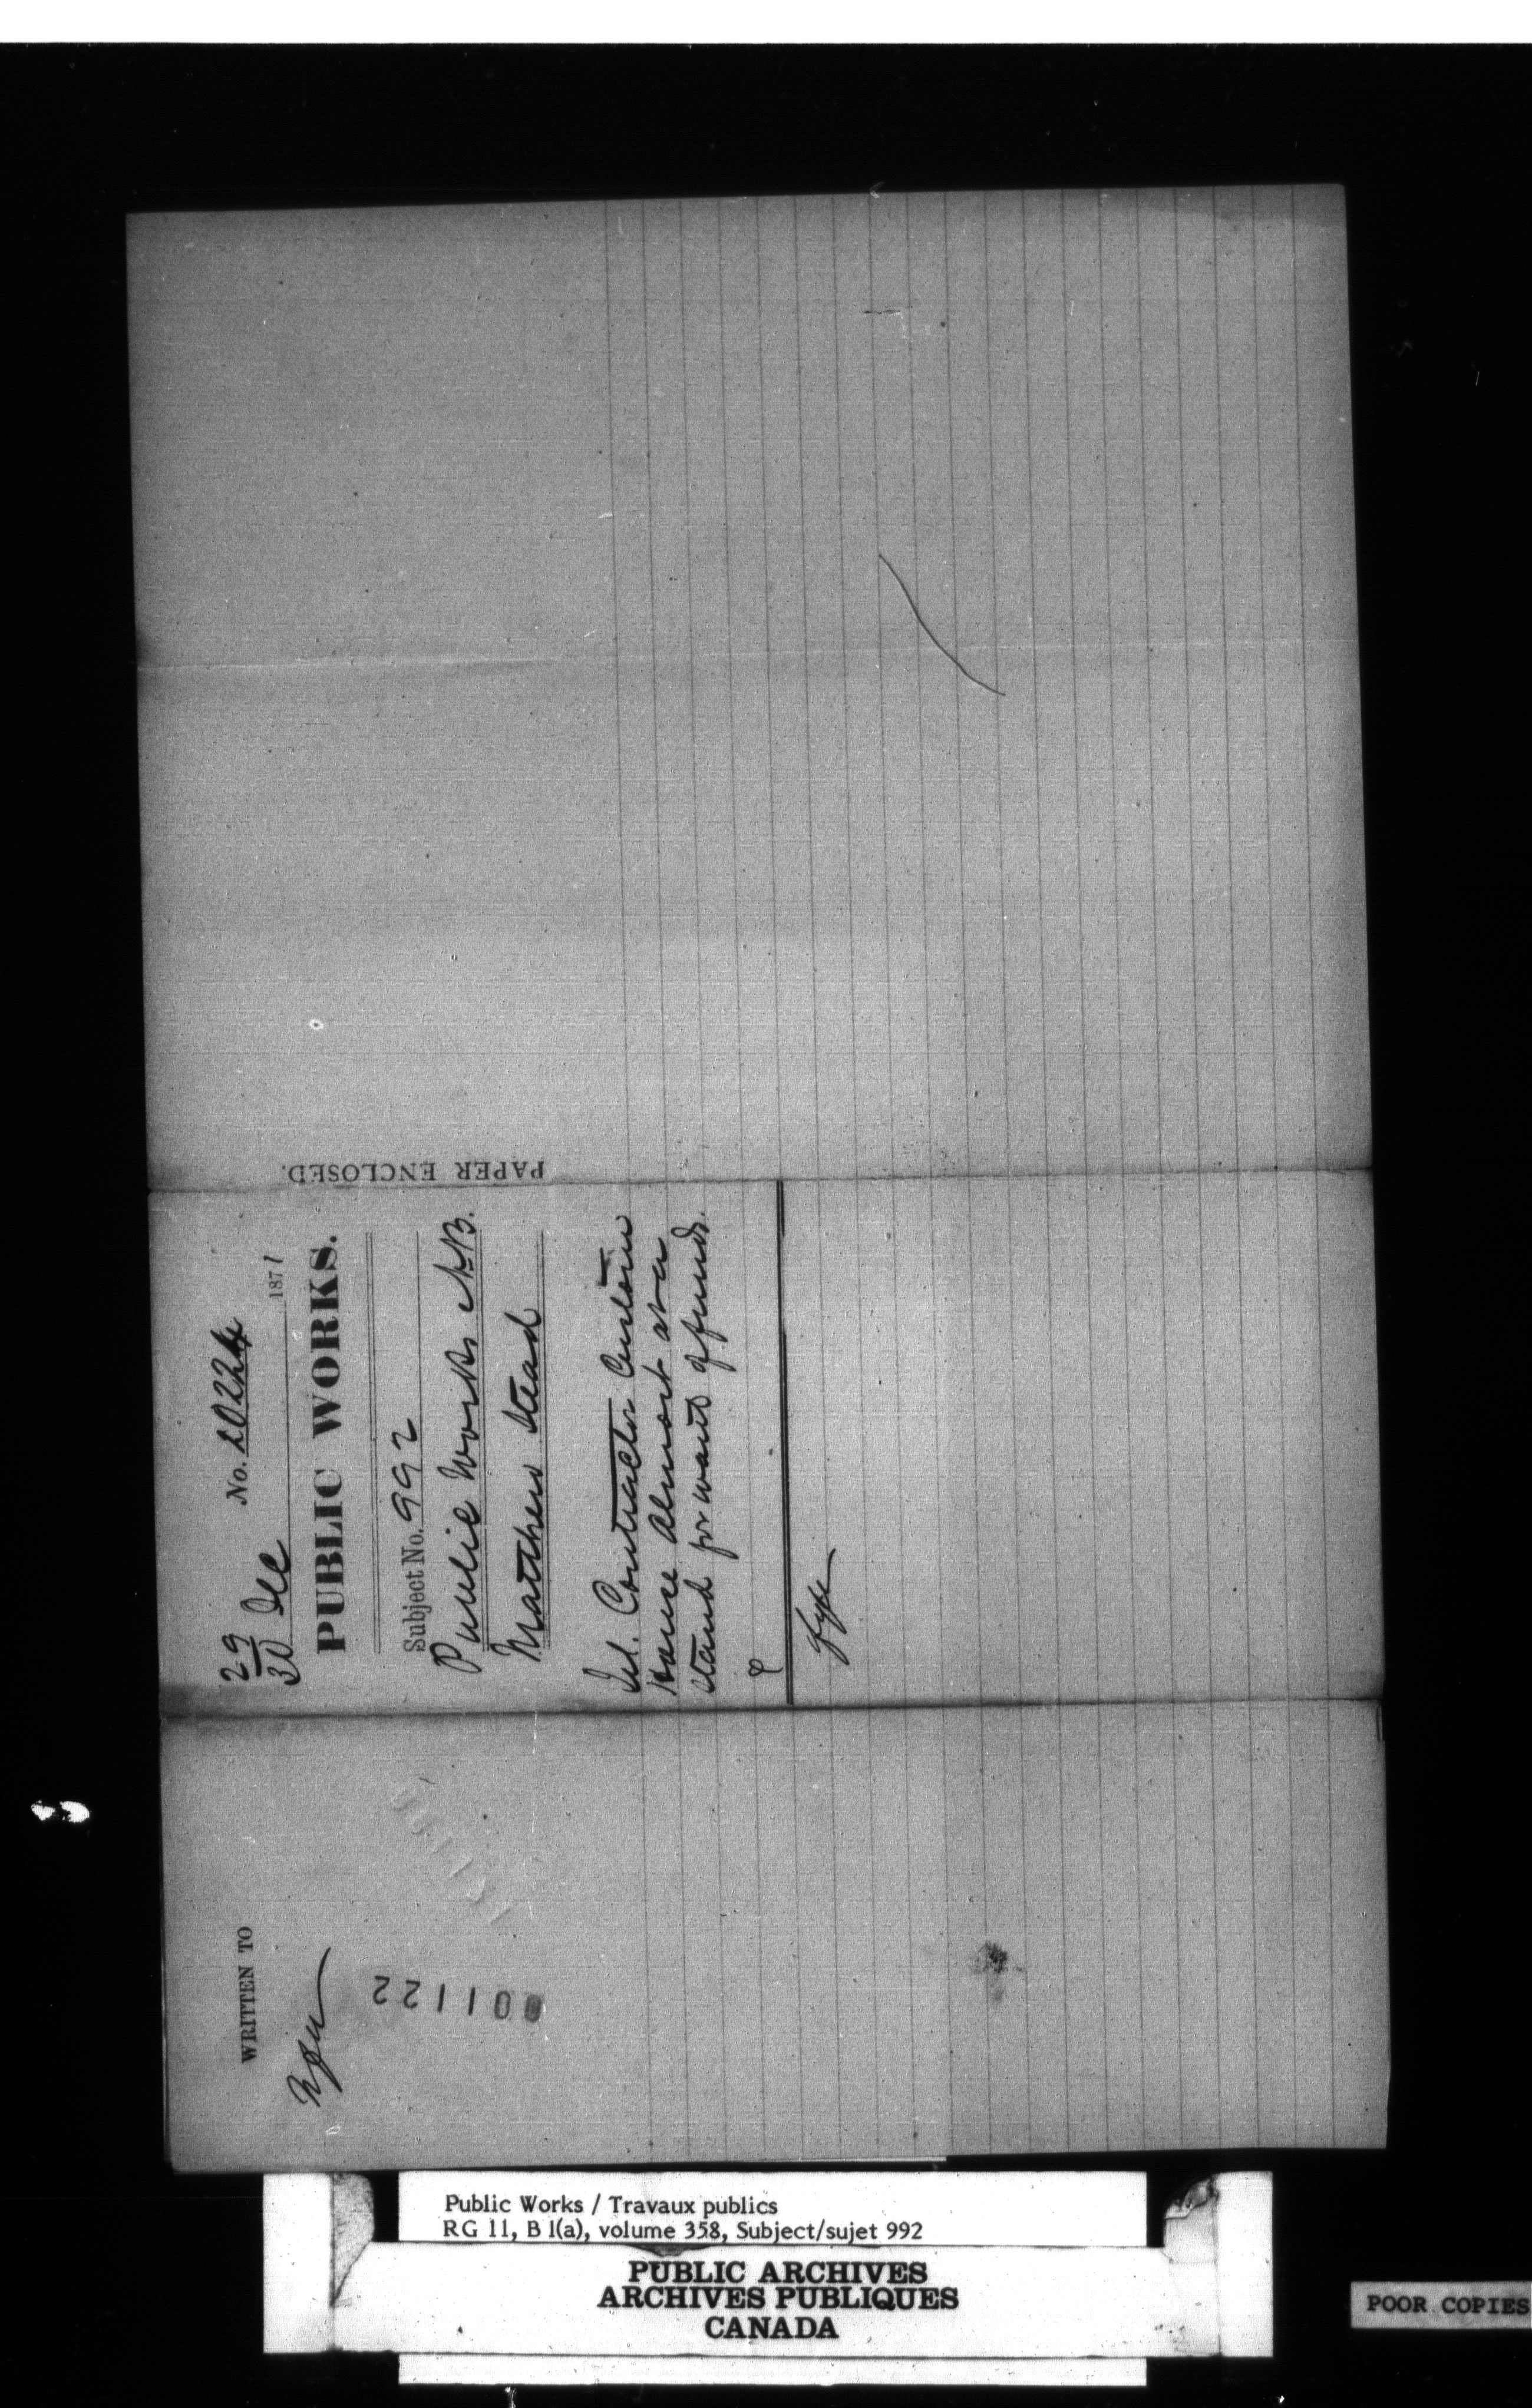 29/30 Dec No. 20224
1871
PUBLIC WORKS.
Subject No. 992
Public Works N.B.
Matthew Stead
Tel. Contractor Custom
House almost at a
stand for want of funds.
PAPER ENCLOSED.
WRITTEN TO
001122
Public Works / Travaux publics
RG 11, B 1(a), volume 358, Subject/sujet 992
PUBLIC ARCHIVES
ARCHIVES PUBLIQUES
CANADA
POOR COPIES